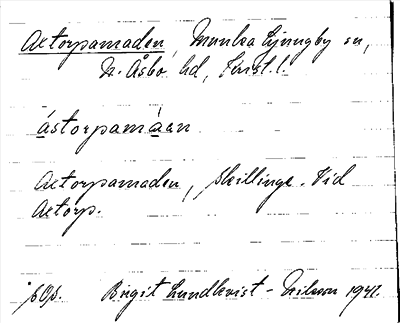 Astorpamaden, Munka Ljungby sn,
N. Åsbo hd, Krist. l.
ástorpamáan
Astorpamaden, skillinge. Vid
Astorp.
Birgit Lundkvist-Nilsson 1941.